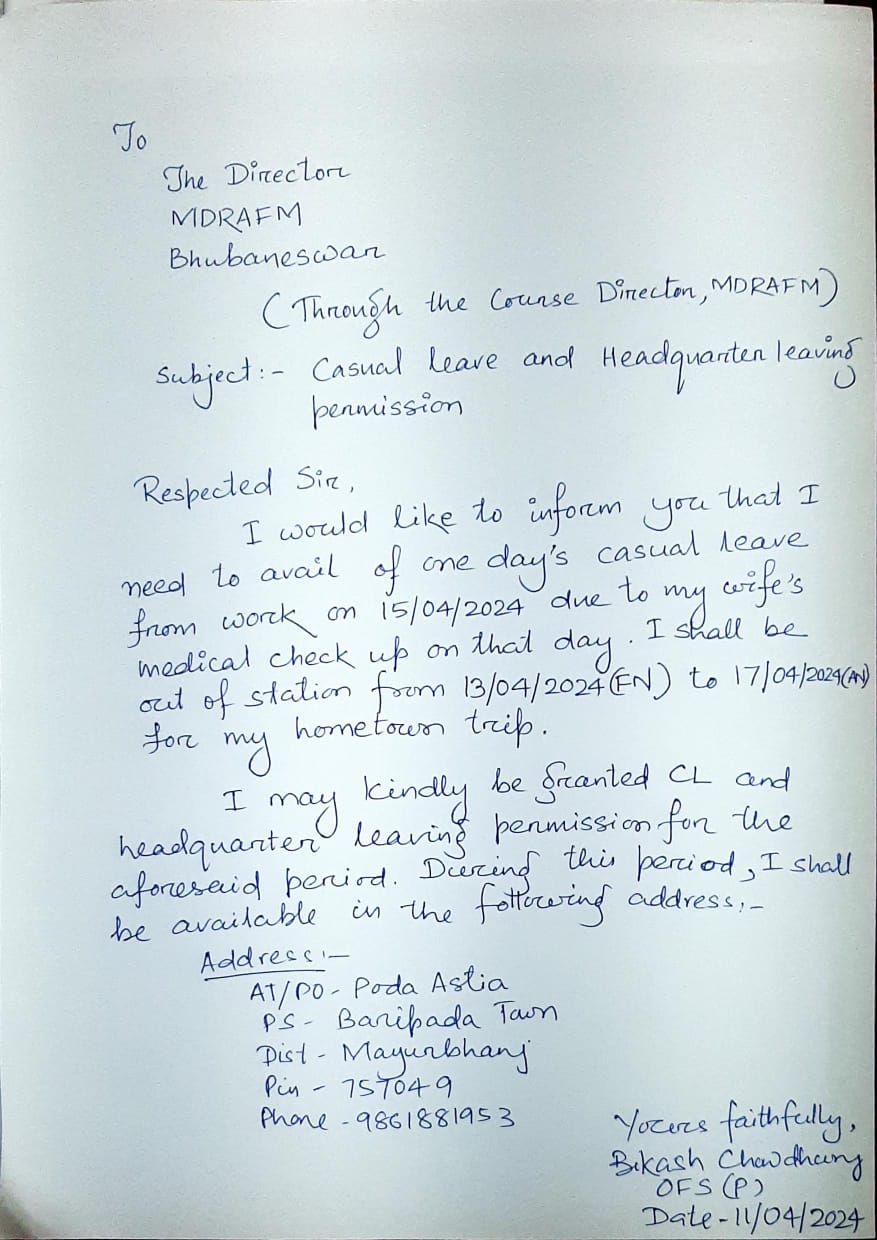 To
The Director
MDRAFM
Bhubaneswar
(Through the Course Director, MDRAFM)
Subject:- Casual leave and Headquarter leaving
permission
Respected Sir,
I would like to inform you that I
need to avail of one day's casual leave
from work on 15/04/2024 due to my wife's
medical check up on that day. I shall be
out of station from 13/04/2024(FN) to 17/04/2024(AN)
for my hometown trip.
I may kindly be granted CL and
headquarter leaving permission for the
aforesaid period. During this period, I shall
be available in the following address:-
Address:-
AT/PO - Poda Astia
PS - Baripada Town
Dist - Mayurbhanj
Pin - 757049
Phone - 9861881953
Yours faithfully,
Bikash Chowdhury
OFS (P)
Date - 11/04/2024